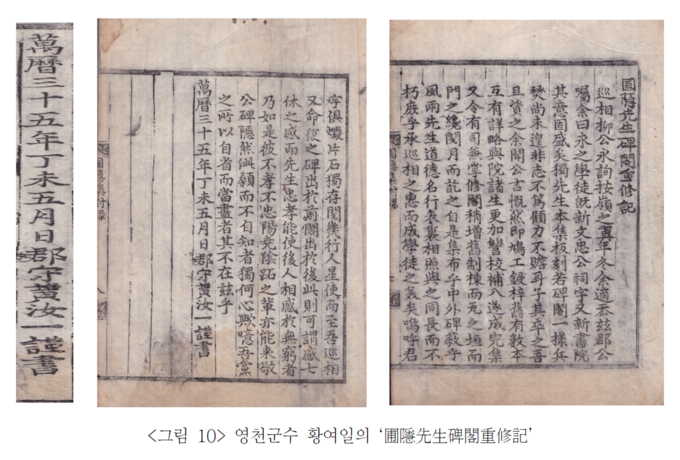 圃隱先生碑閣重修記
巡相柳公永詢按嶺之年冬余適忝玆郡公
囑余曰永之學徒旣新文忠公祠宇又新書院
其意固盛矣獨先生本集板刻若碑閣一樣兵
燹尚未遑非志不篤顧力不贍耳子其卒之吾
且賛之余聞公言慨然卽鳩工鋟梓舊有數本
互有詳略與院諸生更加讐校補入遂成完集
又令有司無堂修閣稍增舊制棟而瓦之垣而
門之纔閱月而訖之自是集布乎中外碑乎
風雨先生道德名行表裏相照與之同長而不
朽庶乎承巡相之惠而成學徒之義矣嗚呼君
字俱燬片石獨存閱幾行人星使而至吾巡相
又命復之碑出於前閣出於後此則可謂感七
休之感而先生忠孝能使後人相感於無窮者
乃如是彼不孝不忠陽陰跖之輩亦能來
公碑隱然而不自知者獨何心歟噫吾黨
之所以自省而當盡者其不在玆乎
萬曆三十五年丁未五月日郡守黃汝一謹書
萬曆三十五年丁未五月日郡守黃汝一謹書
<그림 10> 영천군수 황여일의 ‘圃隱先生碑閣重修記’